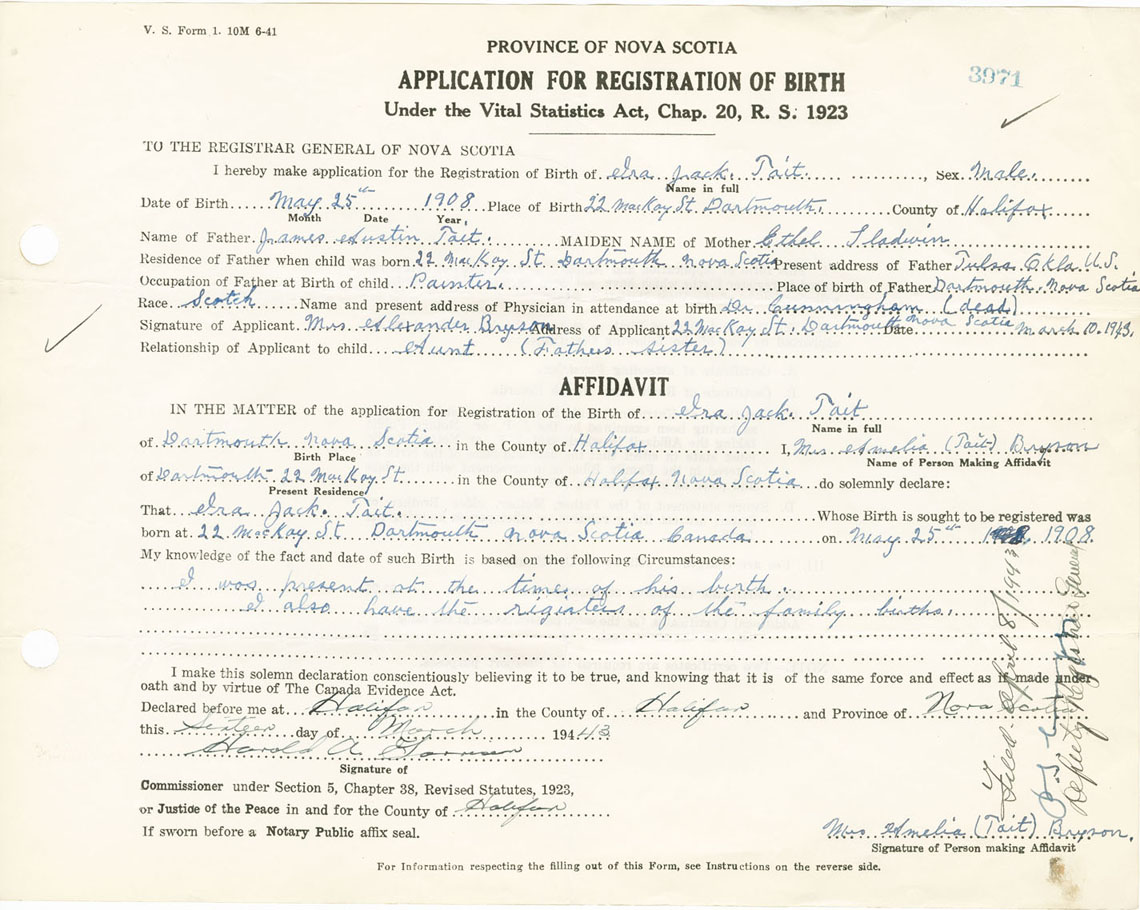 V. S. Form 1. 10M 6-41
PROVINCE OF NOVA SCOTIA
3971
APPLICATION FOR REGISTRATION OF BIRTH
Under the Vital Statistics Act, Chap. 20, R. S. 1923
TO THE REGISTRAR GENERAL OF NOVA SCOTIA
I hereby make application for the Registration of Birth of Ira Jack Tait, Sex Male
Name in full
Date of Birth May 25th 1908 Place of Birth 22 MacKay St Dartmouth County of Halifax
Month Date Year,
Name of Father James Austin Tait MAIDEN NAME of Mother Ethel Sladwin
Residence of Father when child was born 22 MacKay St Dartmouth Nova Scotia Present address of Father Tulsa Okla U.S.
Occupation of Father at Birth of child Painter Place of birth of Father Dartmouth Nova Scotia
Race Scotch Name and present address of Physician in attendance at birth Dr Cunningham (dead)
Signature of Applicant Mrs. Alexander Bryson Address of Applicant 22 MacKay St. Dartmouth Nova Scotia Date March 10. 1943.
Relationship of Applicant to child Aunt (Fathers sister)
AFFIDAVIT
IN THE MATTER of the application for Registration of the Birth of Ira Jack Tait
Name in full
of Dartmouth Nova Scotia in the County of Halifax I, Mrs Amelia (Tait) Bryson
Birth Place Name of Person Making Affidavit
of Dartmouth 22 MacKay St in the County of Halifax Nova Scotia do solemnly declare:
Present Residence
That Ira Jack Tait Whose Birth is sought to be registered was
born at 22 MacKay St Dartmouth Nova Scotia Canada on May 25th 1908.
My knowledge of the fact and date of such Birth is based on the following Circumstances:
I was present at the time of his birth.
I also have the register of the family births.
I make this solemn declaration conscientiously believing it to be true, and knowing that it is of the same force and effect as if made under
oath and by virtue of The Canada Evidence Act.
Declared before me at Halifax in the County of Halifax and Province of Nova Scotia
this Sixteen day of March 194 43
Harold A.
Signature of
Commissioner under Section 5, Chapter 38, Revised Statutes, 1923,
or Justice of the Peace in and for the County of Halifax
If sworn before a Notary Public affix seal.
Filed April 8/1943
Deputy Registrar General
Mrs Amelia (Tait) Bryson.
Signature of Person making Affidavit
For Information respecting the filling out of this Form, see Instructions on the reverse side.